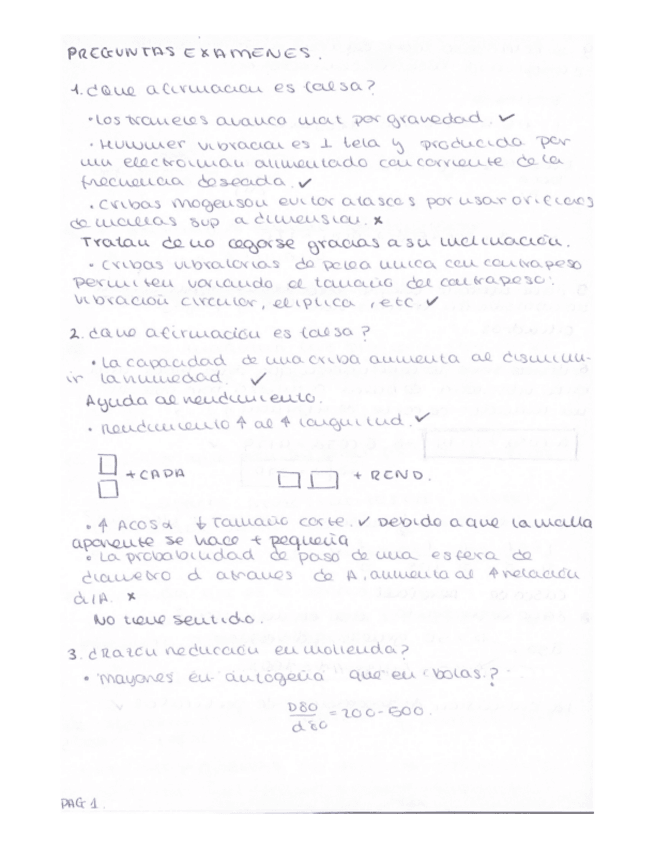 PREGUNTAS EXAMENES.
1. ¿Que afirmacion es falsa?
• Los tromeles avanza mat por gravedad. ✓
• Hummer vibracion es ⊥ tela y producida por
un electroiman alimentado con corriente de la
frecuencia deseada. ✓
• Cribas Mogenson evitar atascos por usar orificios
de mallas sup a dimension. x
Tratan de no cegarse gracias a su inclinación.
• Cribas vibratorias de polea unica con contrapeso
permiten variando el tamaño del contrapeso:
vibración circular, eliptica, etc ✓
2. ¿Que afirmación es falsa?
• La capacidad de una criba aumenta al disminu-
ir la humedad. ✓
Ayuda al rendimiento.
• Rendimiento ↑ al ↑ longuitud. ✓
+ CAPA
+ REND.
• ↑ ACOSα ↓ Tamaño corte. ✓ Debido a que la malla
aparente se hace + pequeña
• La probabilidad de paso de una esfera de
diametro d atraves de A, aumenta al ↑ relación
d/A. x
No tiene sentido.
3. ¿Razon reducción en molienda?
• Mayores en autogena que en bolas.?
D80/d80 = 200 - 500.
PAG 1.